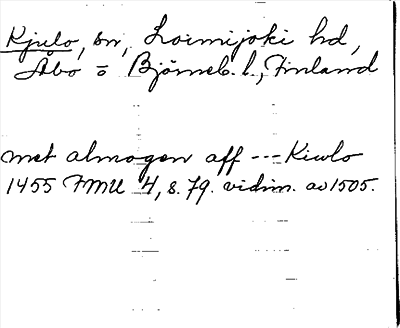 Kjulo, sn, Loimijoki hd,
Åbo o Björneb. l., Finland
met almogen aff --- Kiwlo
1455 FMU 4, s. 79. vidim. av 1505.